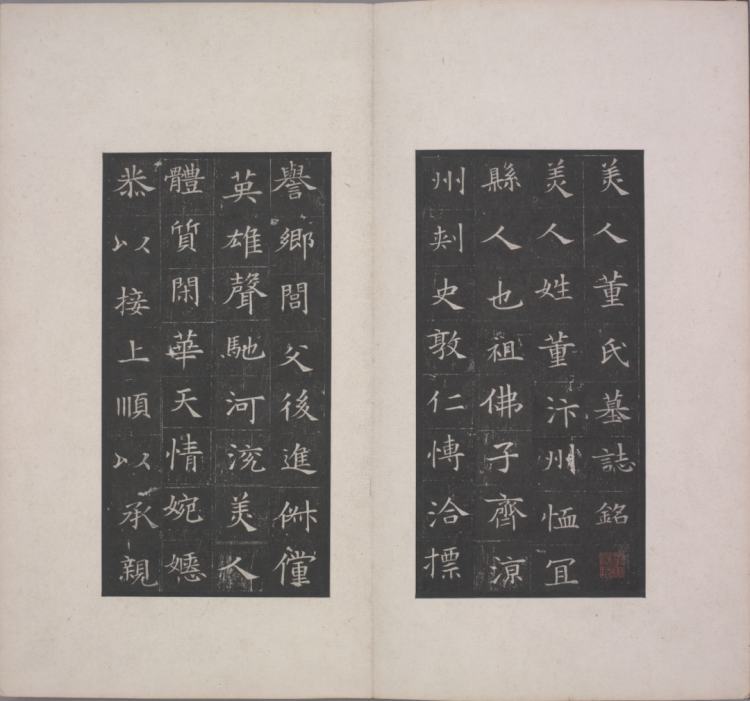 美人董氏墓誌銘
美人姓董汴州恤冝
縣人也祖佛子齊涼
州刺史敦仁愽洽摽
譽鄉閭父後進俶儻
英雄聲馳河沇美人
體質閑華天情婉嫕
恭以接上順以承親